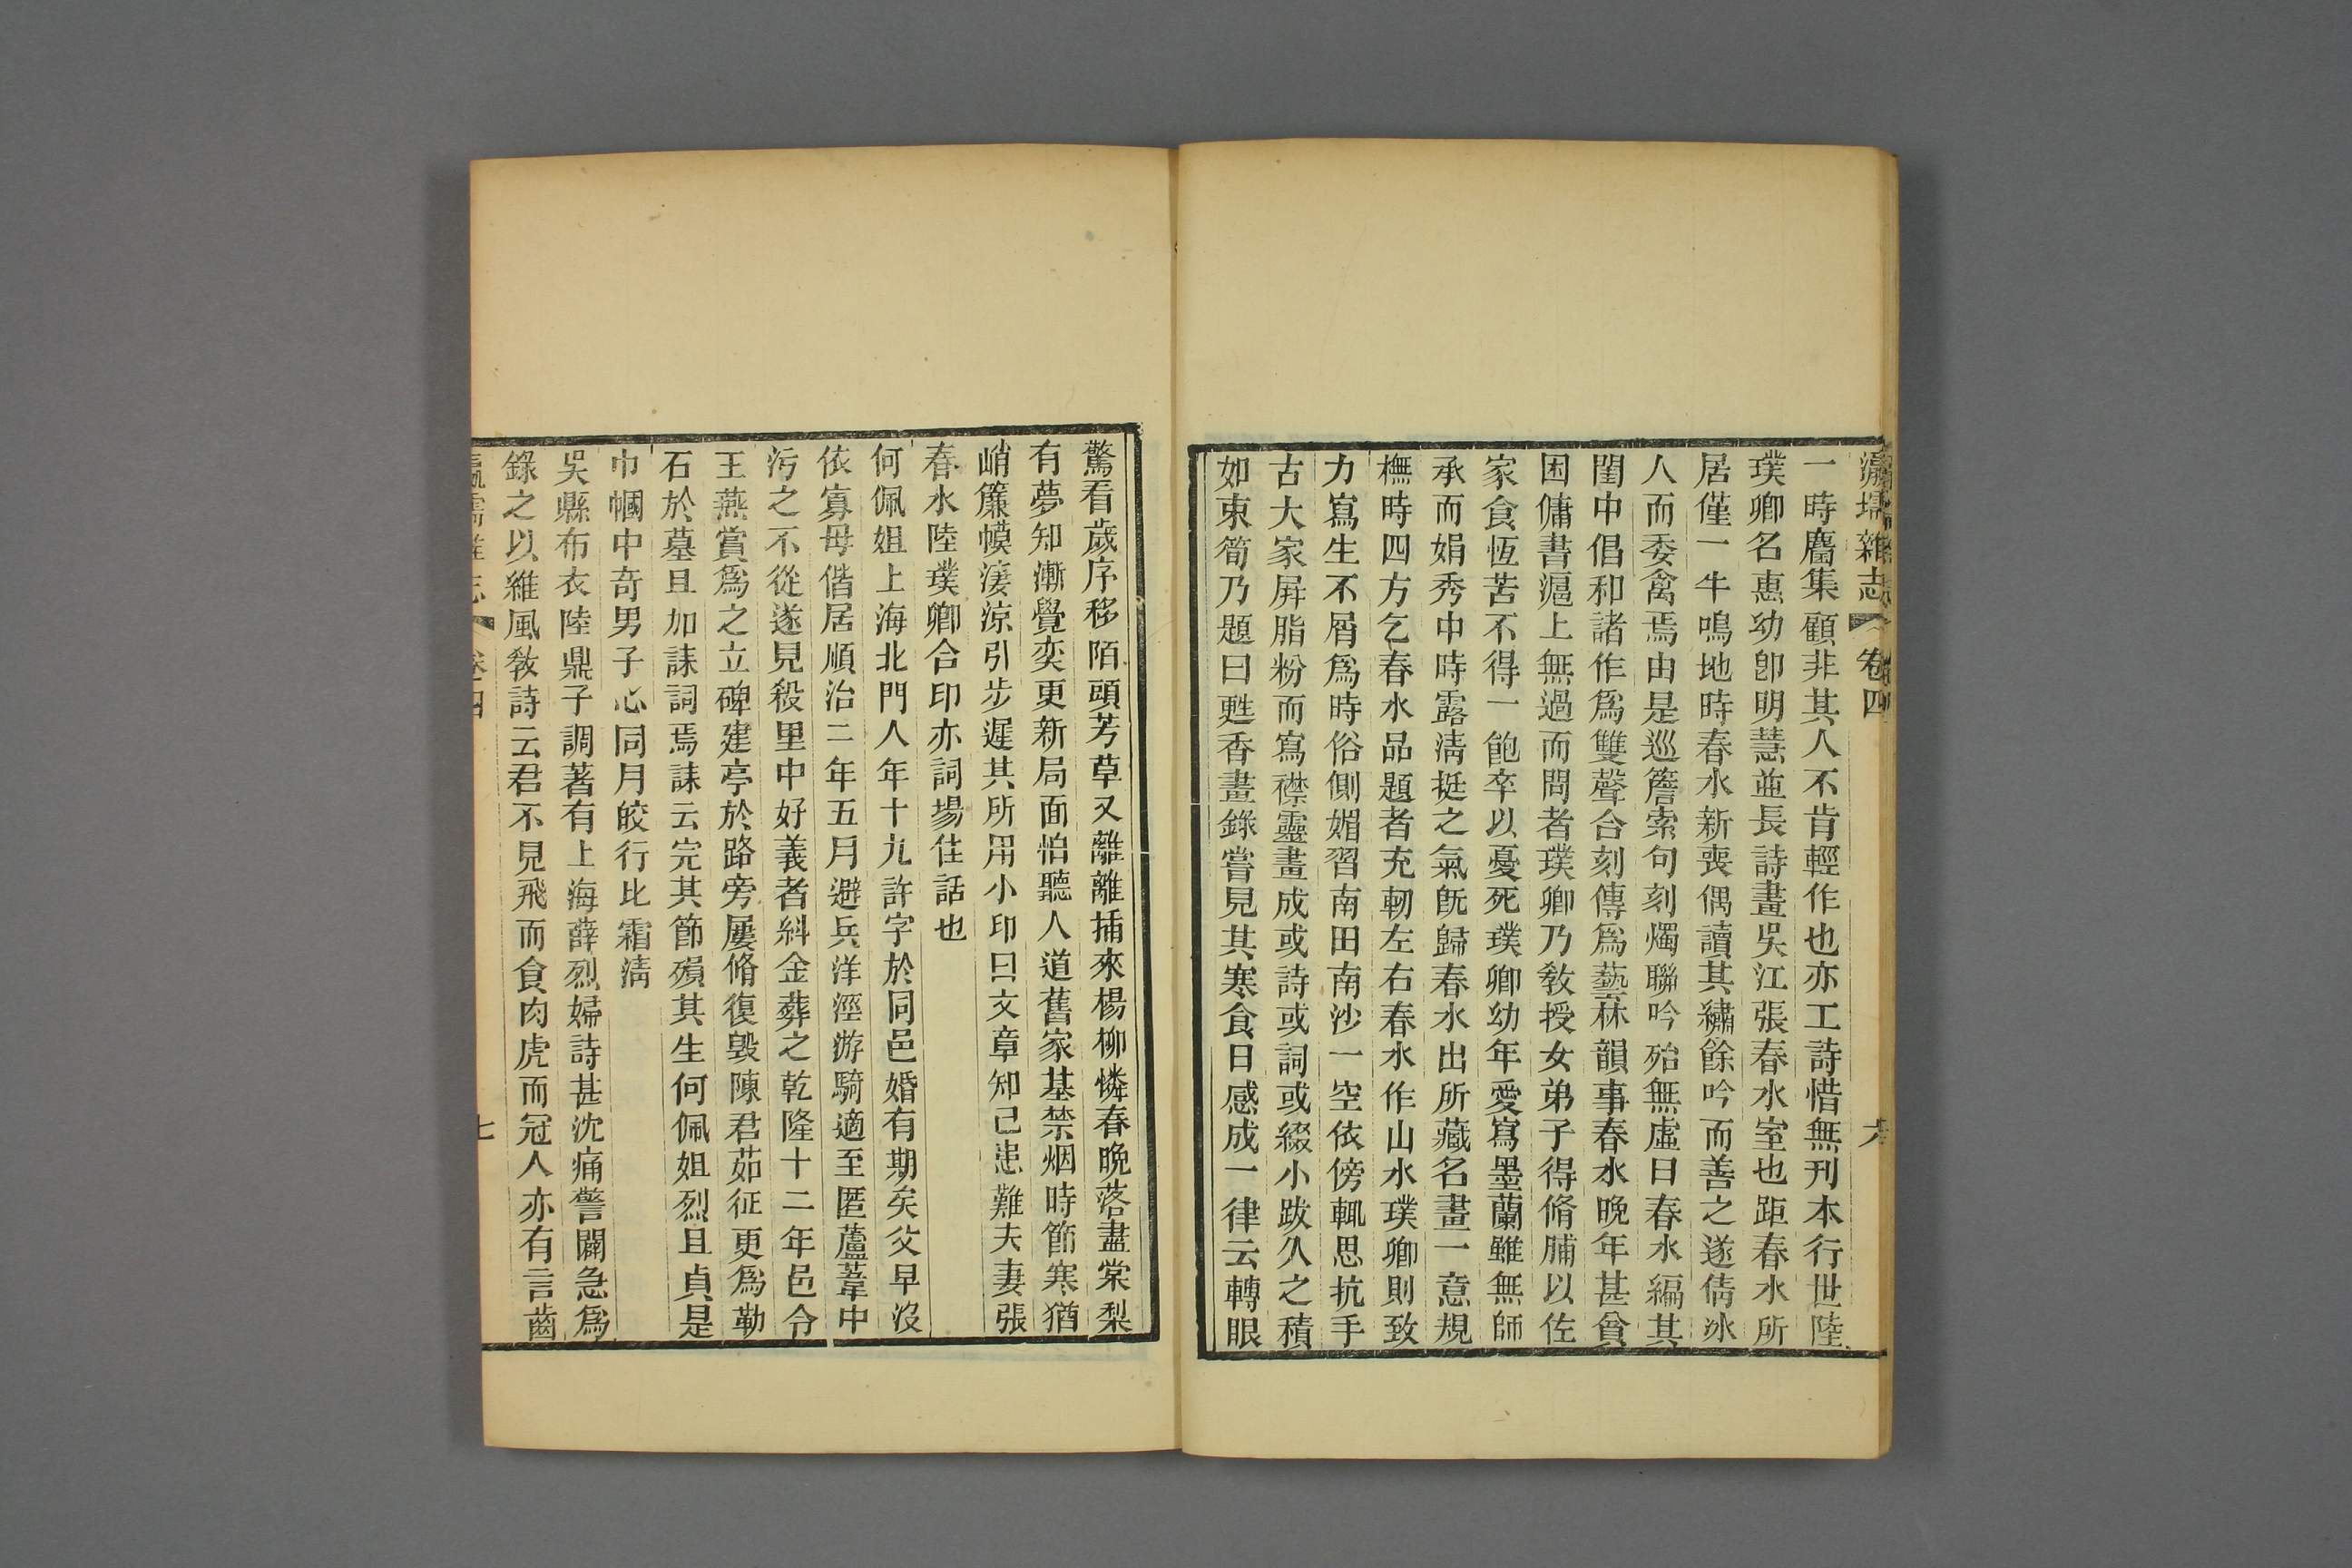 瀛壖雜志 卷四 六
一時麕集顧非其人不肯輕作也亦工詩惜無刊本行世陸
璞卿名惠幼卽明慧並長詩畫吳江張春水室也距春水所
居僅一牛鳴地時春水新喪偶讀其繡餘吟而善之遂倩冰
人而委禽焉由是巡簷索句刻燭聯吟殆無虛日春水編其
閨中倡和諸作爲雙聲合刻傳爲藝林韻事春水晚年甚貧
困傭書滬上無過而問者璞卿乃敎授女弟子得脩脯以佐
家食恆苦不得一飽卒以憂死璞卿幼年愛寫墨蘭雖無師
承而娟秀中時露淸挺之氣旣歸春水出所藏名畫一意規
橅時四方乞春水品題者充軔左右春水作山水璞卿則致
力寫生不屑爲時俗側媚習南田南沙一空依傍輒思抗手
古大家屛脂粉而寫襟靈畫成或詩或詞或綴小跋久之積
如束筍乃題曰甦香畫錄嘗見其寒食日感成一律云轉眼
驚看歲序移陌頭芳草又離離插來楊柳憐春晚落盡棠梨
有夢知漸覺奕更新局面怕聽人道舊家基禁烟時節寒猶
峭簾幙淒涼引步遲其所用小印曰文章知己患難夫妻張
春水陸璞卿合印亦詞場佳話也
何佩姐上海北門人年十九許字於同邑婚有期矣父早沒
依寡母偕居順治二年五月避兵洋涇游騎適至匿蘆葦中
污之不從遂見殺里中好義者糾金葬之乾隆十二年邑令
王燕賞爲之立碑建亭於路旁屢脩復毀陳君茹征更爲勒
石於墓且加誄詞焉誄云完其節殞其生何佩姐烈且貞是
巾幗中奇男子心同月皎行比霜淸
吳縣布衣陸鼎子調著有上海薛烈婦詩甚沈痛警闢急爲
錄之以維風敎詩云君不見飛而食肉虎而冠人亦有言齒
瀛壖雜志 卷四 七